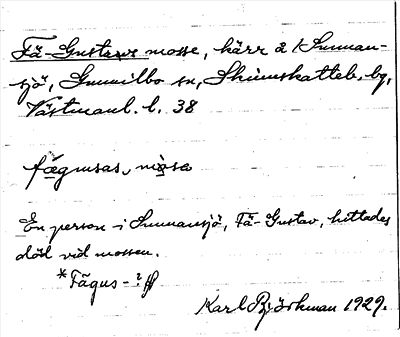 Fä-Gustavs mosse, kärr à Sunnan-
sjö, Gunnilbo sn, Skinnskatteb. hd,
Västmanl. l. 38
fægusas, måsa
En person i Sunnansjö, Fä-Gustav, hittades
död vid mossen.
*Fägus-?
Karl Björkman 1929.